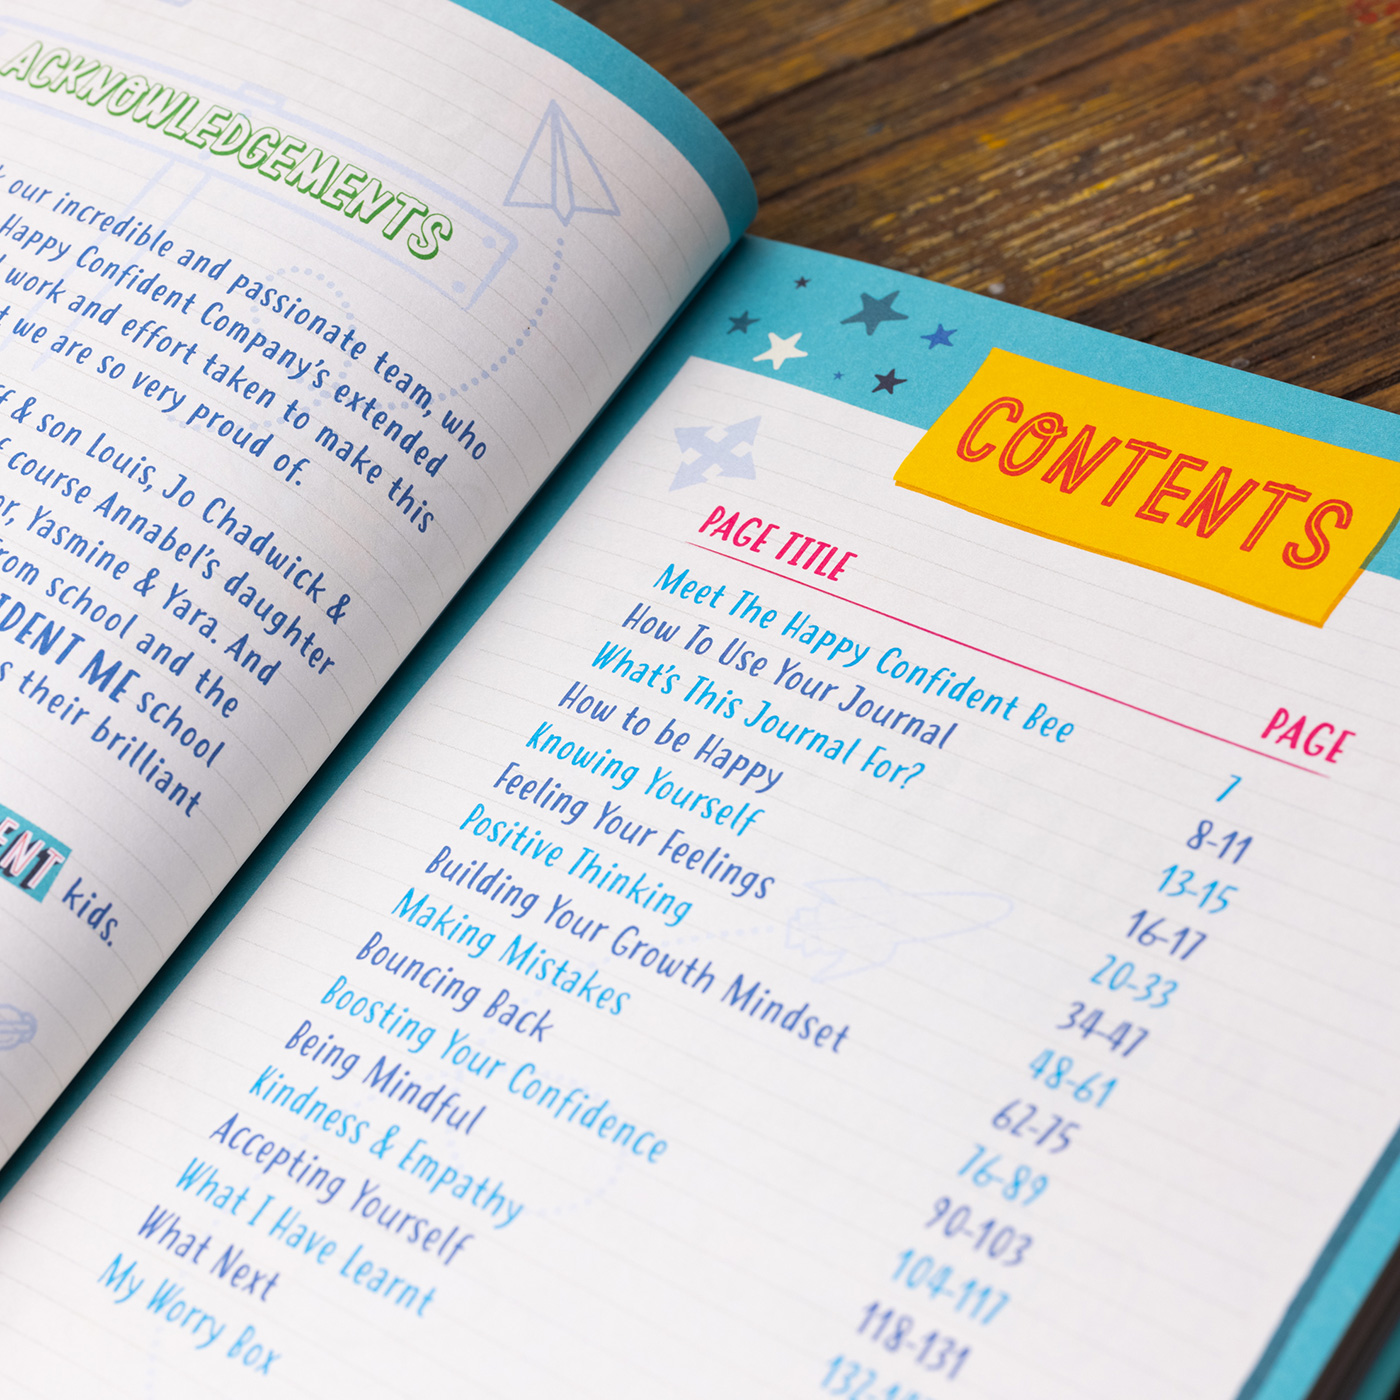 ACKNOWLEDGEMENTS
our incredible and passionate team, who
Happy Confident Company's extended
work and effort taken to make this
we are so very proud of.
& son Louis, Jo Chadwick &
course Annabel's daughter
Yasmine & Yara. And
school and the
ME school
their brilliant
kids.
CONTENTS
PAGE TITLE PAGE
Meet The Happy Confident Bee 7
How To Use Your Journal 8-11
What's This Journal For? 13-15
How to be Happy 16-17
Knowing Yourself 20-33
Feeling Your Feelings 34-47
Positive Thinking 48-61
Building Your Growth Mindset 62-75
Making Mistakes 76-89
Bouncing Back 90-103
Boosting Your Confidence 104-117
Being Mindful 118-131
Kindness & Empathy
Accepting Yourself
What I Have Learnt
What Next
My Worry Box